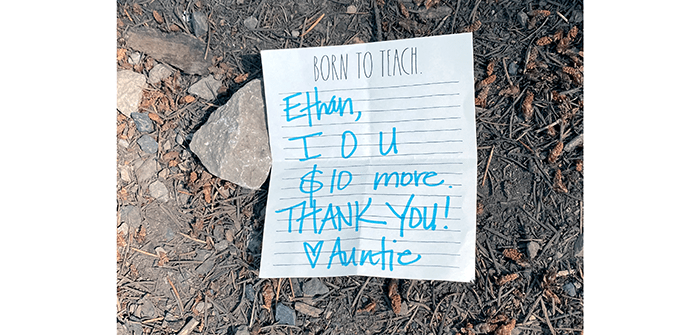 BORN TO TEACH.
Ethan,
I O U
$10 more.
THANK YOU!
♡ Auntie